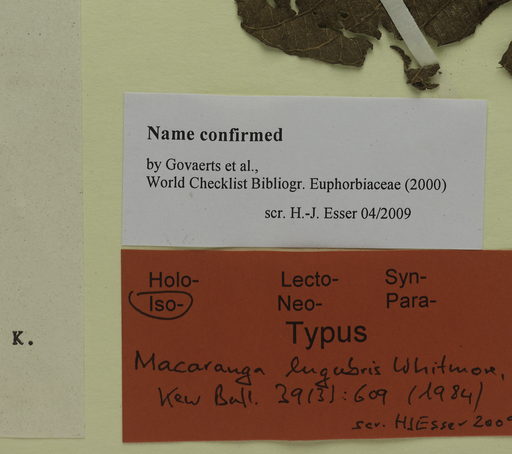 Name confirmed
by Govaerts et al.,
World Checklist Bibliogr. Euphorbiaceae (2000)
scr. H.-J. Esser 04/2009
Holo- Lecto- Syn-
Iso- Neo- Para-
Typus
Macaranga lugubris Whitmore,
Kew Bull. 39(3): 609 (1984)
scr. HJEsser 2009
K.